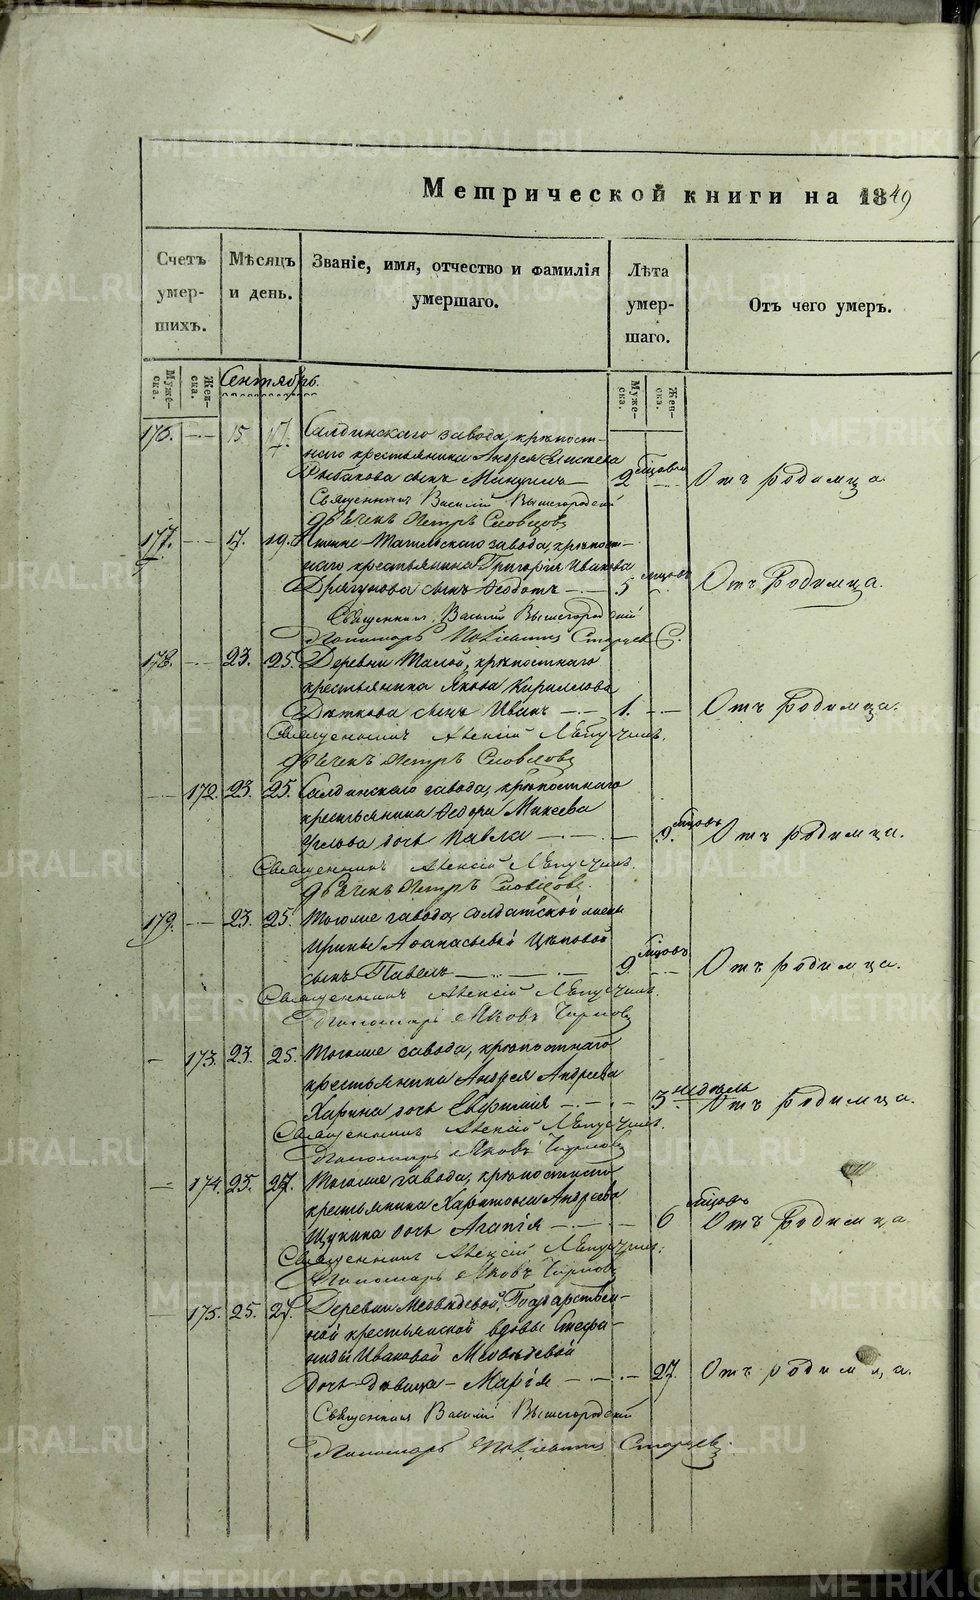 Метрической книги на 1849
Счетъ умершихъ.
Мѣсяцъ и день.
Званіе, имя, отчество и фамилія умершаго.
Лѣта умершаго.
Отъ чего умеръ.
Мужеска.
Женска.
Сентябрь.
Мужеска.
Женска.
176. 15 17. Салдинскаго завода, крѣпост-
наго крестьянина Андрея
сынъ 2 мѣсяцовъ Отъ родимца.
Священникъ Василій Вышегородскій
Дьячекъ Петръ Словцовъ
177. 17. 19. Нижне-Тагильскаго завода, крѣпост-
наго крестьянина Григорія Иванова
Драгунова сынъ Ѳеодотъ 5 мѣсяцовъ Отъ Родимца.
Священникъ Василій Вышегородскій
Пономарь
178. 23. 25. Деревни Малой, крѣпостнаго
крестьянина Якова Кириллова
сынъ Иванъ 1. Отъ Родимца.
Священникъ Алексій
Дьячекъ Петръ Словцовъ
172. 23. 25. Салдинскаго завода, крѣпостнаго
крестьянина Ѳедора Микѣева
Углова дочь Павла 9. мѣсяцовъ Отъ родимца.
Священникъ Алексій
Дьячекъ Петръ Словцовъ.
179. 23. 25. Тогоже завода, солдатской жены
Ирины Аѳанасьевой
сынъ Павелъ 9 мѣсяцовъ Отъ родимца.
Священникъ Алексій
Пономарь Яковъ
173. 23. 25. Тогоже завода, крѣпостнаго
крестьянина Андрея Андреева
Харина дочь Евфимія 3 недѣль Отъ родимца.
Священникъ Алексій
Пономарь Яковъ
174. 25. 27. Тогоже завода, крѣпостнаго
крестьянина Харитона Андреева
Щукина дочь Агапія 6 мѣсяцовъ Отъ Родимца.
Священникъ Алексій
Пономарь Яковъ
175. 25. 27. Деревни Медвѣдевой, Государствен-
ной крестьянской вдовы Стефа-
ниды Ивановой Медвѣдевой
дочь дѣвица Марія 27. Отъ родимца.
Священникъ Василій Вышегородскій
Пономарь
METRIKI.GASO-URAL.RU